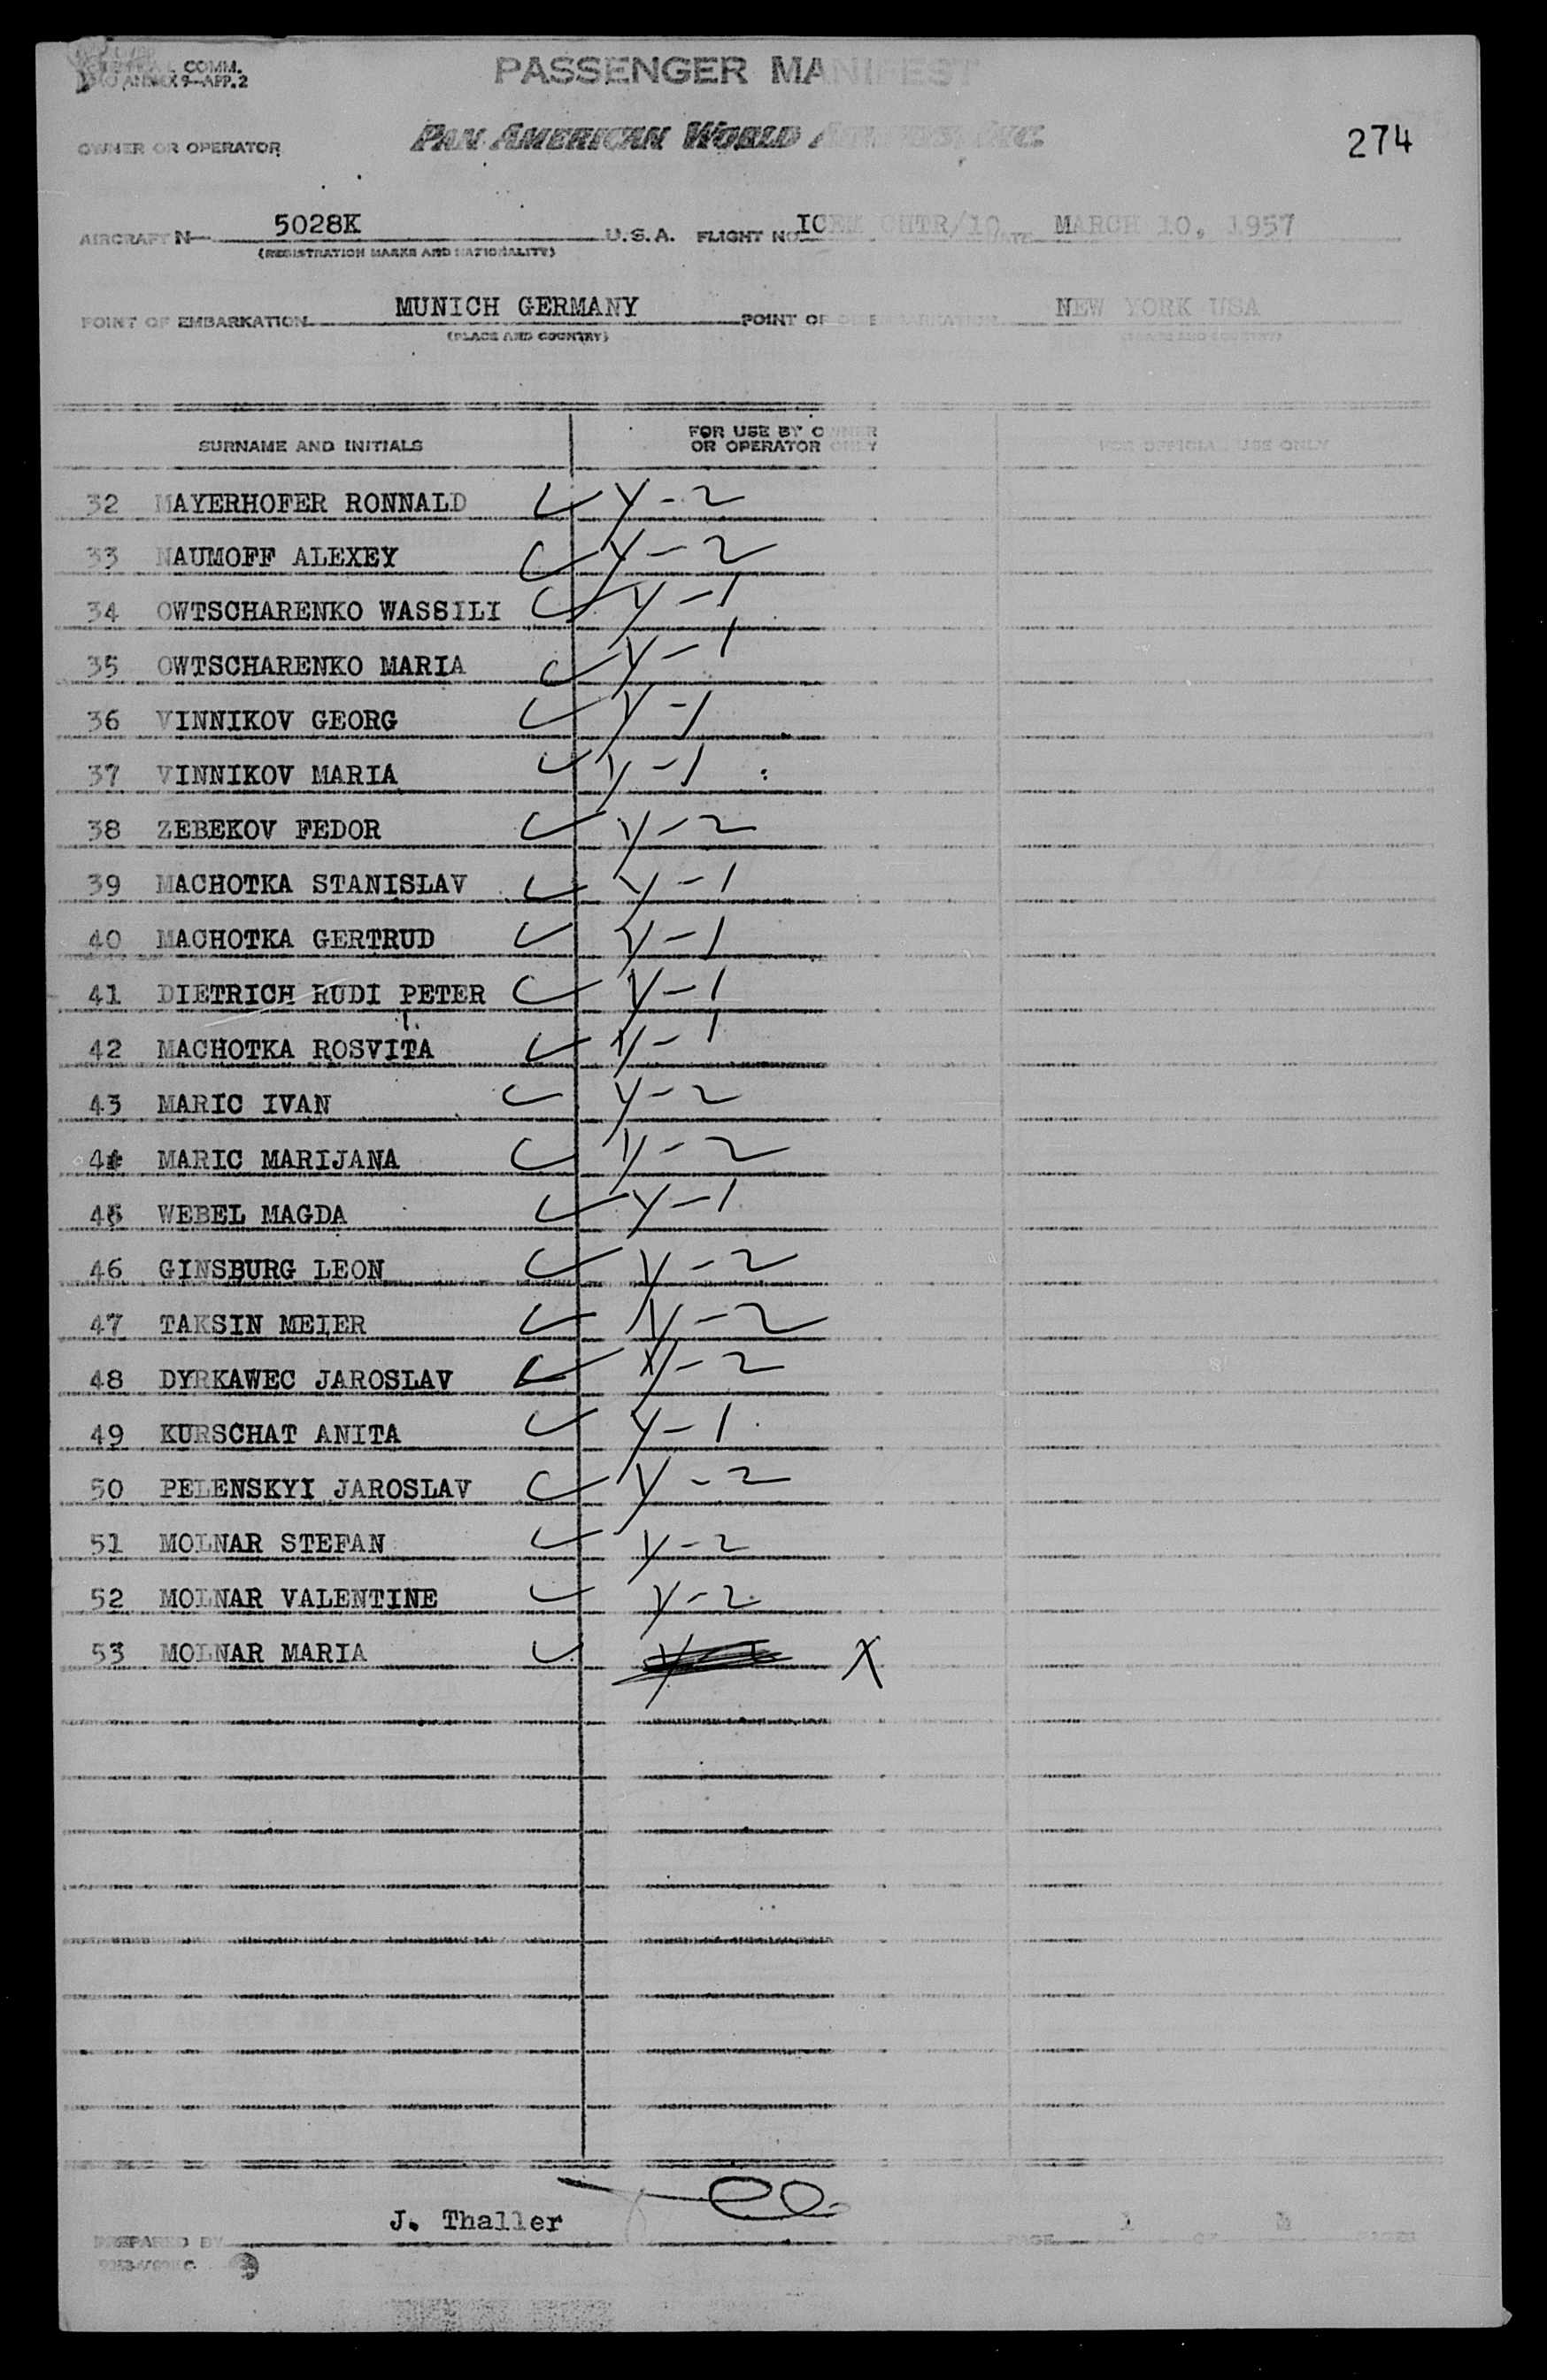 COMM.
ANNEX 9—APP.2
PASSENGER MANIFEST
PAN AMERICAN WORLD AIRWAYS INC.
OWNER OR OPERATOR
274
AIRCRAFT N— 5028K U.S.A. FLIGHT NO. ICEM CHTR/10 DATE MARCH 10, 1957
(REGISTRATION MARKS AND NATIONALITY)
POINT OF EMBARKATION MUNICH GERMANY POINT OF DISEMBARKATION NEW YORK USA
(PLACE AND COUNTRY) (PLACE AND COUNTRY)
SURNAME AND INITIALS FOR USE BY OWNER OR OPERATOR ONLY FOR OFFICIAL USE ONLY
32 MAYERHOFER RONNALD Y-2
33 NAUMOFF ALEXEY Y-2
34 OWTSCHARENKO WASSILI Y-1
35 OWTSCHARENKO MARIA Y-1
36 VINNIKOV GEORG Y-1
37 VINNIKOV MARIA Y-1
38 ZEBEKOV FEDOR Y-2
39 MACHOTKA STANISLAV Y-1
40 MACHOTKA GERTRUD Y-1
41 DIETRICH RUDI PETER Y-1
42 MACHOTKA ROSVITA Y-1
43 MARIC IVAN Y-2
44 MARIC MARIJANA Y-2
45 WEBEL MAGDA Y-1
46 GINSBURG LEON Y-2
47 TAKSIN MEIER Y-2
48 DYRKAWEC JAROSLAV Y-2
49 KURSCHAT ANITA Y-1
50 PELENSKYI JAROSLAV Y-2
51 MOLNAR STEFAN Y-2
52 MOLNAR VALENTINE Y-2
53 MOLNAR MARIA X
PREPARED BY J. Thaller PAGE OF PAGES